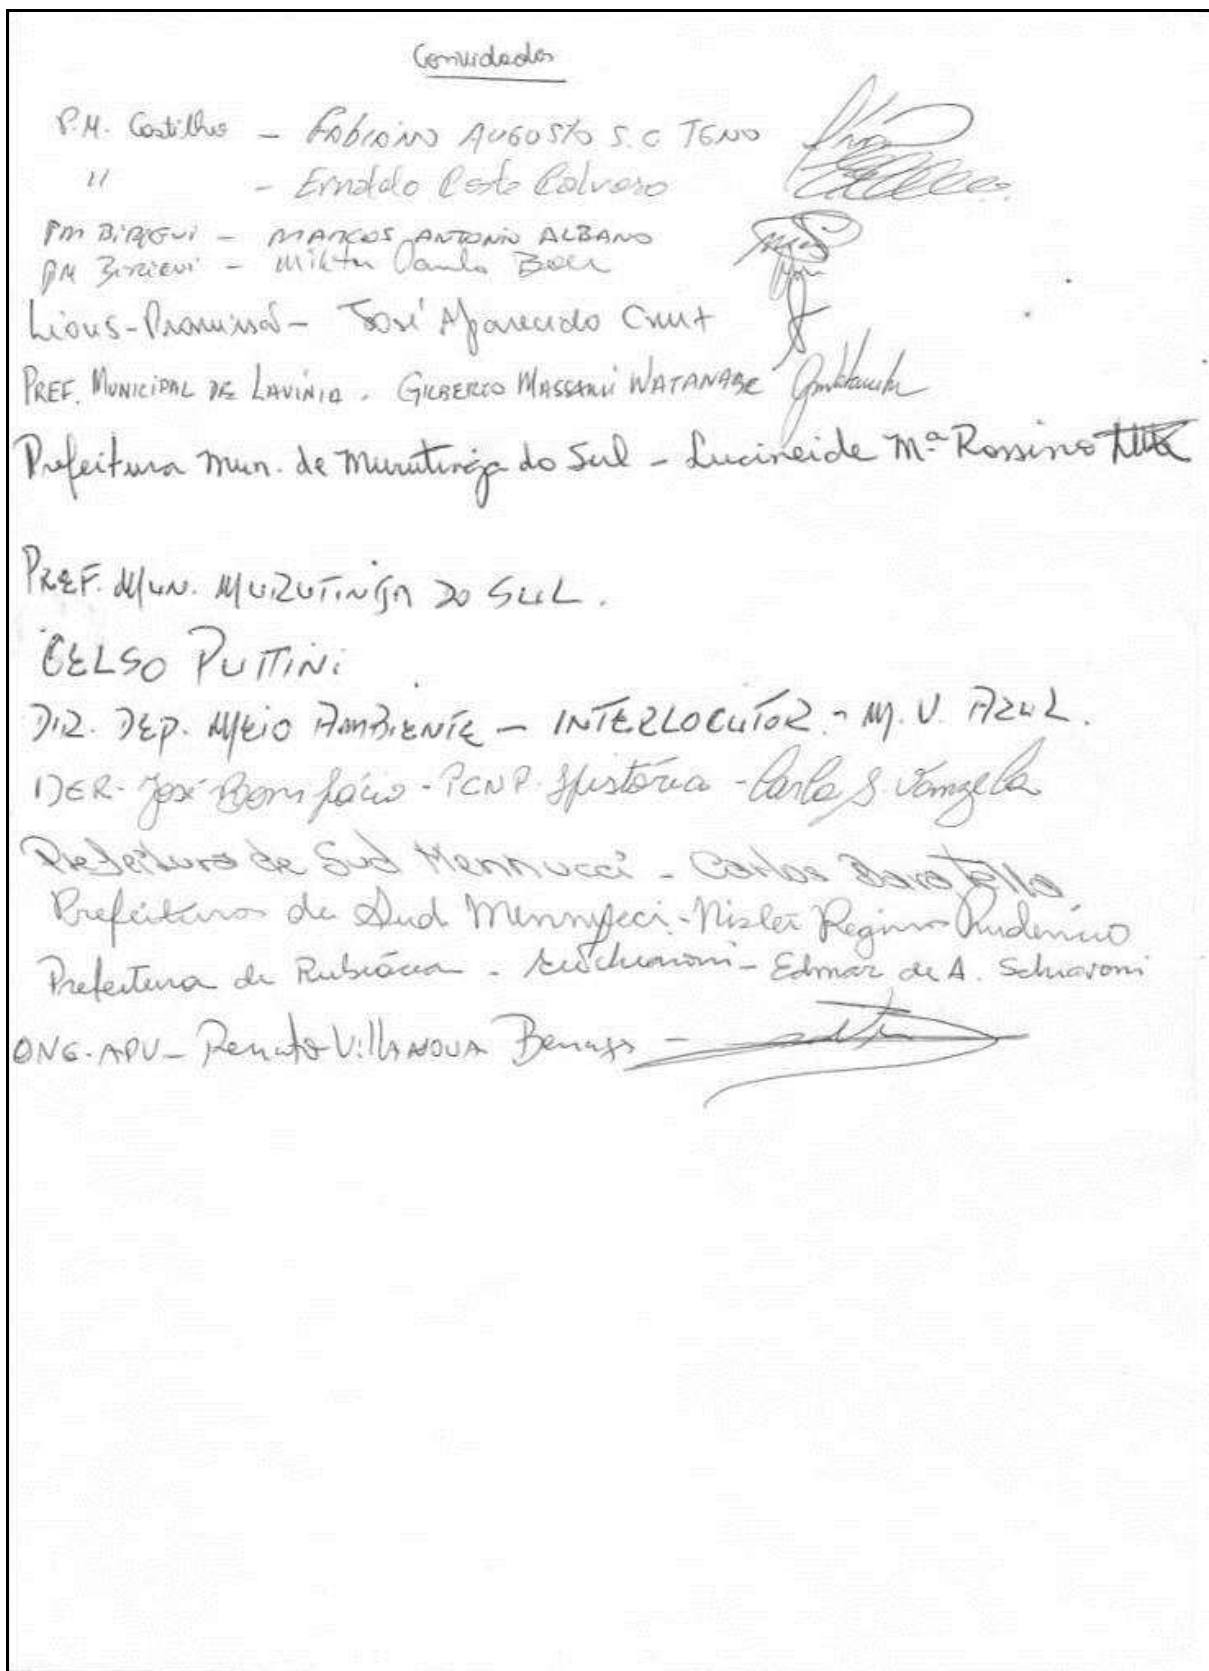 Convidados
P.M. Castilho - Fabiano AUGUSTO S. C TENO
" - Ernaldo Calvoso
PM BIRIGUI - MARCOS ANTONIO ALBANO
PM BIRIGUI - Milton Paulo Boer
Lions-Promissão - José Aparecido Cruz
PREF. MUNICIPAL DE LAVÍNIA. GILBERTO MASSAMI WATANABE
Prefeitura Mun. de Murutinga do Sul - Lucineide Mª Rossino
PREF. MUN. MURUTINGA DO SUL.
CELSO PUTTINI
DIR. DEP. MEIO AMBIENTE - INTERLOCUTOR - M. V. AZUL.
DER - José Bonifácio - PCNP. História - Carlos S. Vanzela
Prefeitura de Sud Mennucci - Carlos
Prefeitura de Sud Mennucci - Regina Prudencio
Prefeitura de Rubiácea - - Edmar de A. Schiaroni
ONG-APV - Renato VillANOVA